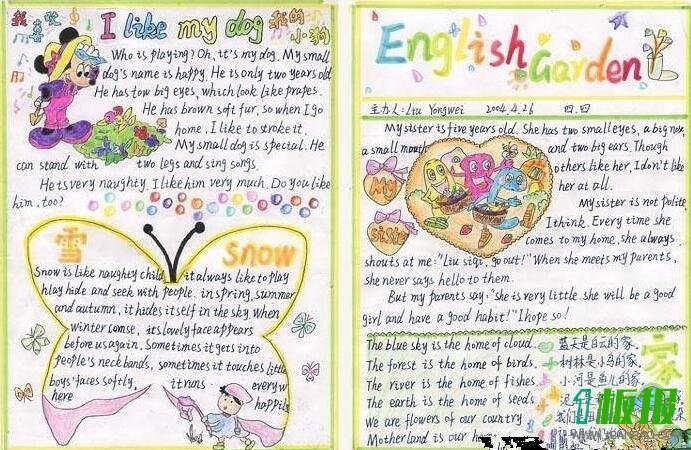 我喜欢 I like my dog 我的小狗
Who is playing? Oh, it's my dog. My small
dog's name is happy. He is only two years old
He has tow big eyes, which look like prapes.
He has brown soft fur, so when I go
home, I like to stroke it.
My small dog is special. He
can stand with two legs and sing songs.
He is very naughty. I like him very much. Do you like
him, too?
雪 Snow
Snow is like naughty child it always like to play
hlay hide and seek with people. in spring, summer
and autumn, it hides itself in the sky. When
winter comse, its lovely face appears
before us again. Sometimes it gets into
people's neck bands, sometimes it touches little
boys' faces softly, it runs everyw
here happily
English Garden
主办人: Liu Yongwei 2004.4.26 四.四
My sister is five years old. She has two small eyes, a big nose,
a small mouth and two big ears. Though
others like her, I don't like
her at all.
My siste
My sister is not polite
I think. Every time she
comes to my home, she always
shouts at me: "Liu go out!" When she meets my parents,
she never says hello to them.
But my parents say: "she is very little. she will be a good
girl and have a good habit!" I hope so!
The blue sky is the home of cloud.
The forest is the home of birds.
The river is the home of fishes
The earth is the home of seeds
We are flowers of our country
Motherland is our
家
蓝天是白云的家.
树林是小鸟的家.
小河是鱼儿的家.
泥
我们
板报